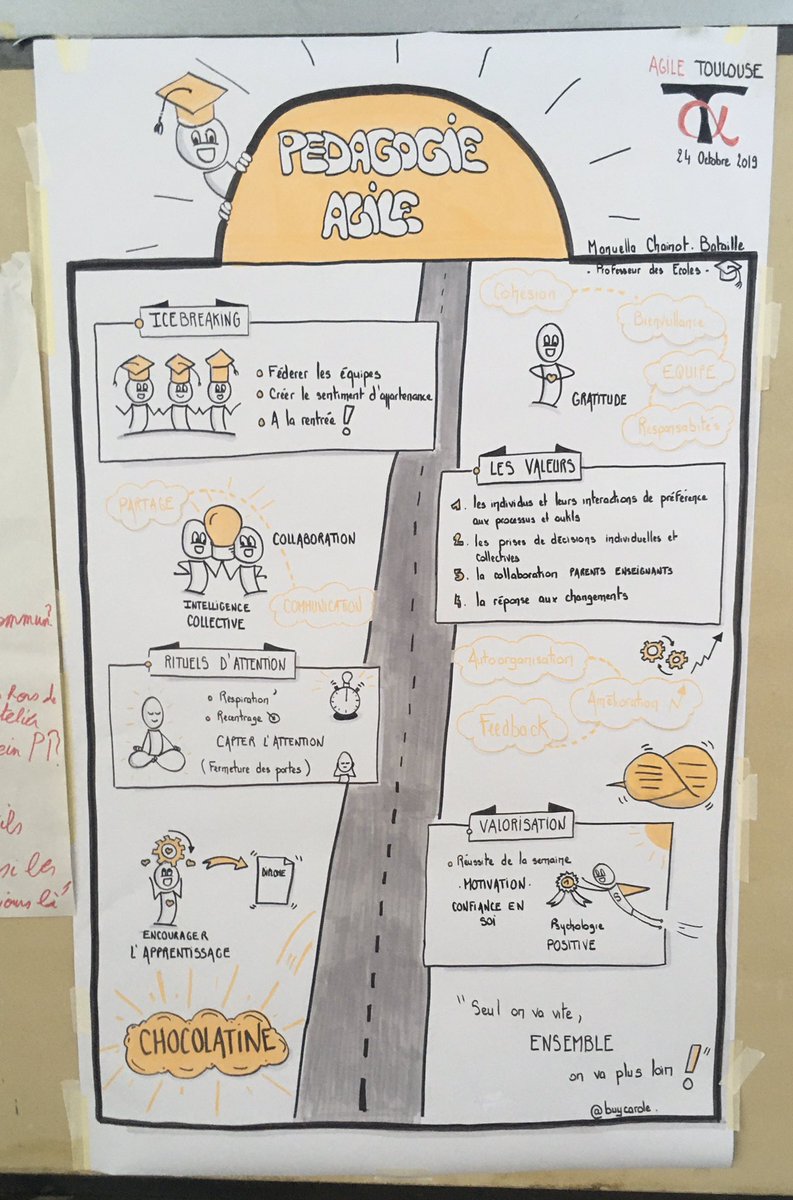 AGILE TOULOUSE
24 Octobre 2019
PEDAGOGIE
AGILE
Manuella Chainot. Bataille
- Professeur des Ecoles -
ICEBREAKING
Féderer les équipes
Créer le sentiment d'appartenance
A la rentrée !
Cohésion
Bienveillance
EQUIPE
Responsabités
GRATITUDE
PARTAGE
COLLABORATION
INTELLIGENCE
COLLECTIVE
COMMUNICATION
LES VALEURS
1. les individus et leurs interactions de préférence
aux processus et outils
2. les prises de décisions individuelles et
collectives
3. la collaboration PARENTS ENSEIGNANTS
4. la réponse aux changements
RITUELS D'ATTENTION
Respiration
Recentrage
CAPTER L'ATTENTION
(Fermeture des portes)
Autoorganisation
Amélioration
Feedback
ENCOURAGER
L'APPRENTISSAGE
DIPLOME
CHOCOLATINE
VALORISATION
Réussite de la semaine
. MOTIVATION .
CONFIANCE EN
SOI
1
S
Psychologie
POSITIVE
"Seul on va vite,
ENSEMBLE
on va plus loin !"
@buycarole.
ommun?
Hors de
telier
ein PI?
ils
si les